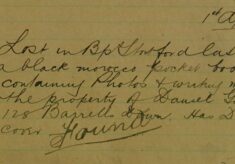 1st A
Lost in Bp Stortford Cas
a black morocco pocket boo
containing Photos & writing m
the property of Daniel G
128 Barrells Down. Has D
cover Found